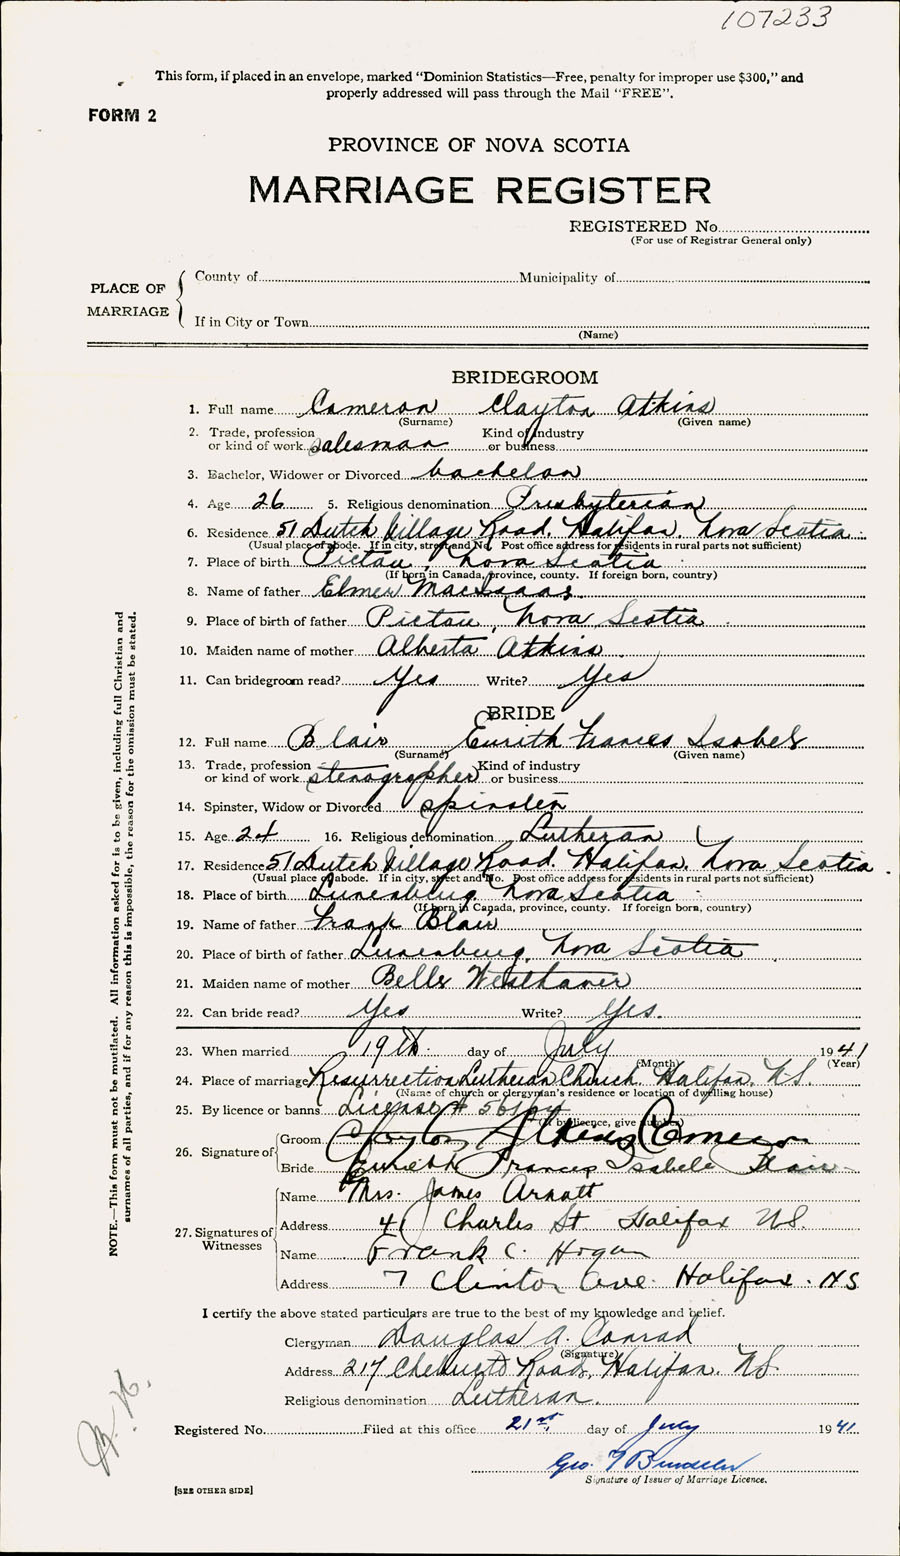 107233
This form, if placed in an envelope, marked "Dominion Statistics—Free, penalty for improper use $300," and
properly addressed will pass through the Mail "FREE".
FORM 2
PROVINCE OF NOVA SCOTIA
MARRIAGE REGISTER
REGISTERED No
(For use of Registrar General only)
PLACE OF MARRIAGE
County of Municipality of
If in City or Town
(Name)
BRIDEGROOM
1. Full name Cameron Clayton Atkins
(Surname) (Given name)
2. Trade, profession Kind of industry
or kind of work salesman or business
3. Bachelor, Widower or Divorced bachelor
4. Age 26 5. Religious denomination Presbyterian
6. Residence 51 Dutch Village Road, Halifax, Nova Scotia
(Usual place of abode. If in city, street and No. Post office address for residents in rural parts not sufficient)
7. Place of birth Pictou, Nova Scotia
(If born in Canada, province, county. If foreign born, country)
8. Name of father Elmer MacIsaac
9. Place of birth of father Pictou, Nova Scotia
10. Maiden name of mother Alberta Atkins
11. Can bridegroom read? Yes Write? Yes
BRIDE
12. Full name Blair Eurith Frances Isobel
(Surname) (Given name)
13. Trade, profession Kind of industry
or kind of work stenographer or business
14. Spinster, Widow or Divorced spinster
15. Age 24 16. Religious denomination Lutheran
17. Residence 51 Dutch Village Road, Halifax, Nova Scotia
(Usual place of abode. If in city, street and No. Post office address for residents in rural parts not sufficient)
18. Place of birth Lunenburg, Nova Scotia
(If born in Canada, province, county. If foreign born, country)
19. Name of father Frank Blair
20. Place of birth of father Lunenburg, Nova Scotia
21. Maiden name of mother Belle Westhaver
22. Can bride read? Yes Write? Yes.
23. When married 19th day of July 1941
(Month) (Year)
24. Place of marriage Resurrection Lutheran Church, Halifax, N.S.
(Name of church or clergyman's residence or location of dwelling house)
25. By licence or banns License #
(If by licence, give number)
26. Signature of
Groom Clayton Atkins Cameron
Bride Eurith Frances Isabele Blair
27. Signatures of Witnesses
Name Mrs. James Arnott
Address 41 Charles St Halifax NS.
Name Frank C. Hogan
Address 7 Clinton Ave. Halifax. NS
I certify the above stated particulars are true to the best of my knowledge and belief.
Clergyman Douglas A. Conrad
(Signature)
Address 217 Chebucto Road, Halifax, NS.
Religious denomination Lutheran.
Registered No. Filed at this office 21st day of July 1941
Geo.
Signature of Issuer of Marriage Licence.
[SEE OTHER SIDE]
NOTE.—This form must not be mutilated. All information asked for is to be given, including full Christian and
surnames of all parties, and if for any reason this is impossible, the reason for the omission must be stated.